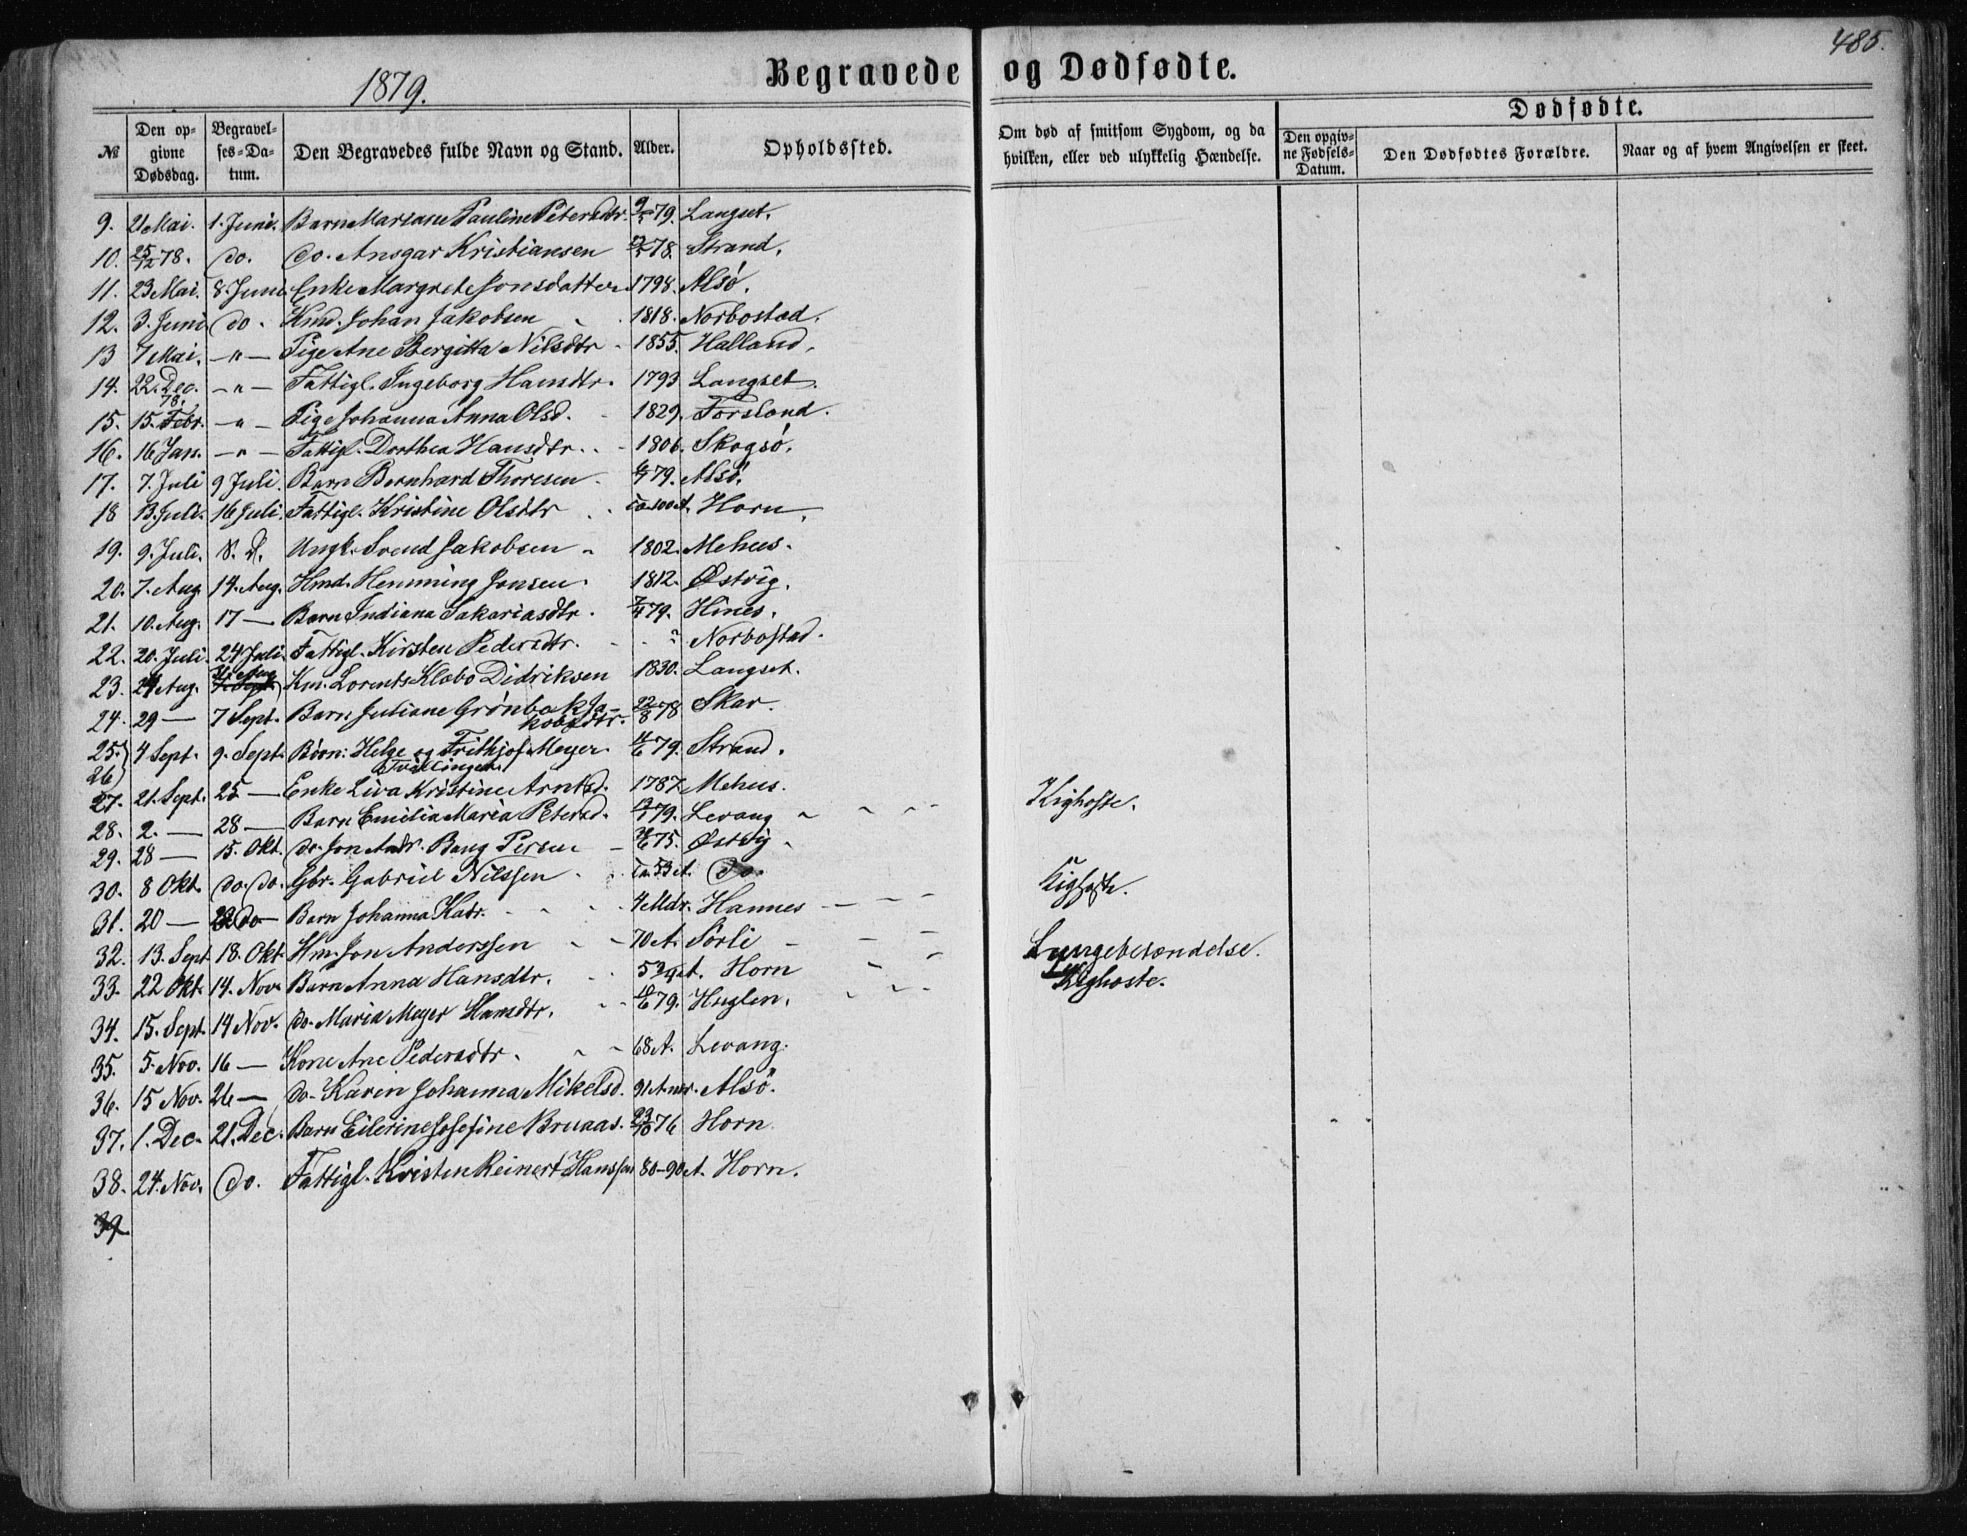 485.
1879.
Begravede og Dødfødte.
Dødfødte.
№ | Den opgivne Dødsdag. | Begravelses-Datum. | Den Begravedes fulde Navn og Stand. | Alder. | Opholdssted. | Om død af smitsom Sygdom, og da hvilken, eller ved ulykkelig Hændelse. | Den opgivne Fødsels-Datum. | Den Dødfødtes Forældre. | Naar og af hvem Angivelsen er skeet.
9. 21 Mai. 1. Juni. Barn Mariane Pauline Petersdtr. 9/5 79. Langset.
10. 25/12 78. do. do. Ansgar Kristiansen 78. Strand.
11. 23 Mai. 8. Juni Enke Margrete Jonsdatter 1798. Alsø.
12. 3. Juni do. Kmd. Johan Jakobsen 1818. Norbostad.
13 7 Mai. -"- Pige Ane Bergitta Nilsdtr 1855. Halland.
14. 22. Dec. 78. -"- Fattigl. Ingeborg Hansdtr. 1793 Langset.
15. 15. Febr. -"- Pige Johanna Anna Olsd. 1829. Forsland.
16. 16 Jan. -"- Fattigl. Dorthea Hansdtr. 1806. Skogsø.
17. 7. Juli 9 Juli. Barn Bernhard Thoresen 79. Alsø.
18 13. Juli. 16 Juli. Fattigl. Kristine Olsdtr ca 100 A. Horn.
19. 9. Juli. S. D. Ungk. Svend Jakobsen 1802. Mehus.
20. 7. Aug. 14. Aug. Hmd. Hemming Jonsen. 1812. Østvig.
21. 10. Aug. 17 — Barn Indiana Sakariasdtr. 7/4 79. Hines.
22. 20. Juli. 24 Juli. Fattigl. Kirsten Pedersdtr. " Norbostad.
23. 24 Aug. 31 Aug Km. Lorents Klæbo Didriksen 1830. Langset.
24. 29 — 7 Sept. Barn Juliane Grønbæk Jakobsdtr. 22/8 78 Skar.
25. 26 4 Sept. 9. Sept. Børn: Helge og Frithjof Meyer. 79. Strand.
Tvillinger.
27. 21. Sept. 25 — Enke Liva Kristine Arntsd. 1787. Mehus.
28. 2. — 28 — Barn Emilia Maria Petersd. 79. Levang " " " Kighoste.
29. 28 — 15. Okt. do. Jon Andr. Bang Persen 75. Østvig
30. 8 Okt. do. do. Gbr. Gabriel Nilssen ca 53 A. do.
31. 20 — do — Barn Johanna Katr. 4 Mdr. Hannes — — — Kighoste.
32. 13. Sept 18. Okt. Hm. Jon Anderssen 70 A. Sørli — — — Lungebetændelse.
33. 22 Okt. 14. Nov. Barn Anna Hansdtr. A. Horn " " Kighoste.
34. 15. Sept. 14 Nov. do. Maria Meyer Hansdtr. 79. Huglen.
35. 5. Nov. 16 — Kone Ane Pedersdtr. 68 A. Levang.
36. 15 Nov. 26 — do- Karin Johanna Mikelsd. 91 A. Alsø.
37. 1. Dec. 21. Dec. Barn Eilerine Josefine Bruaas. 23/10 76 Horn
38. 24. Nov. do. Fattigl. Kristen Reinert Hanssen 80-90 A. Horn.
39